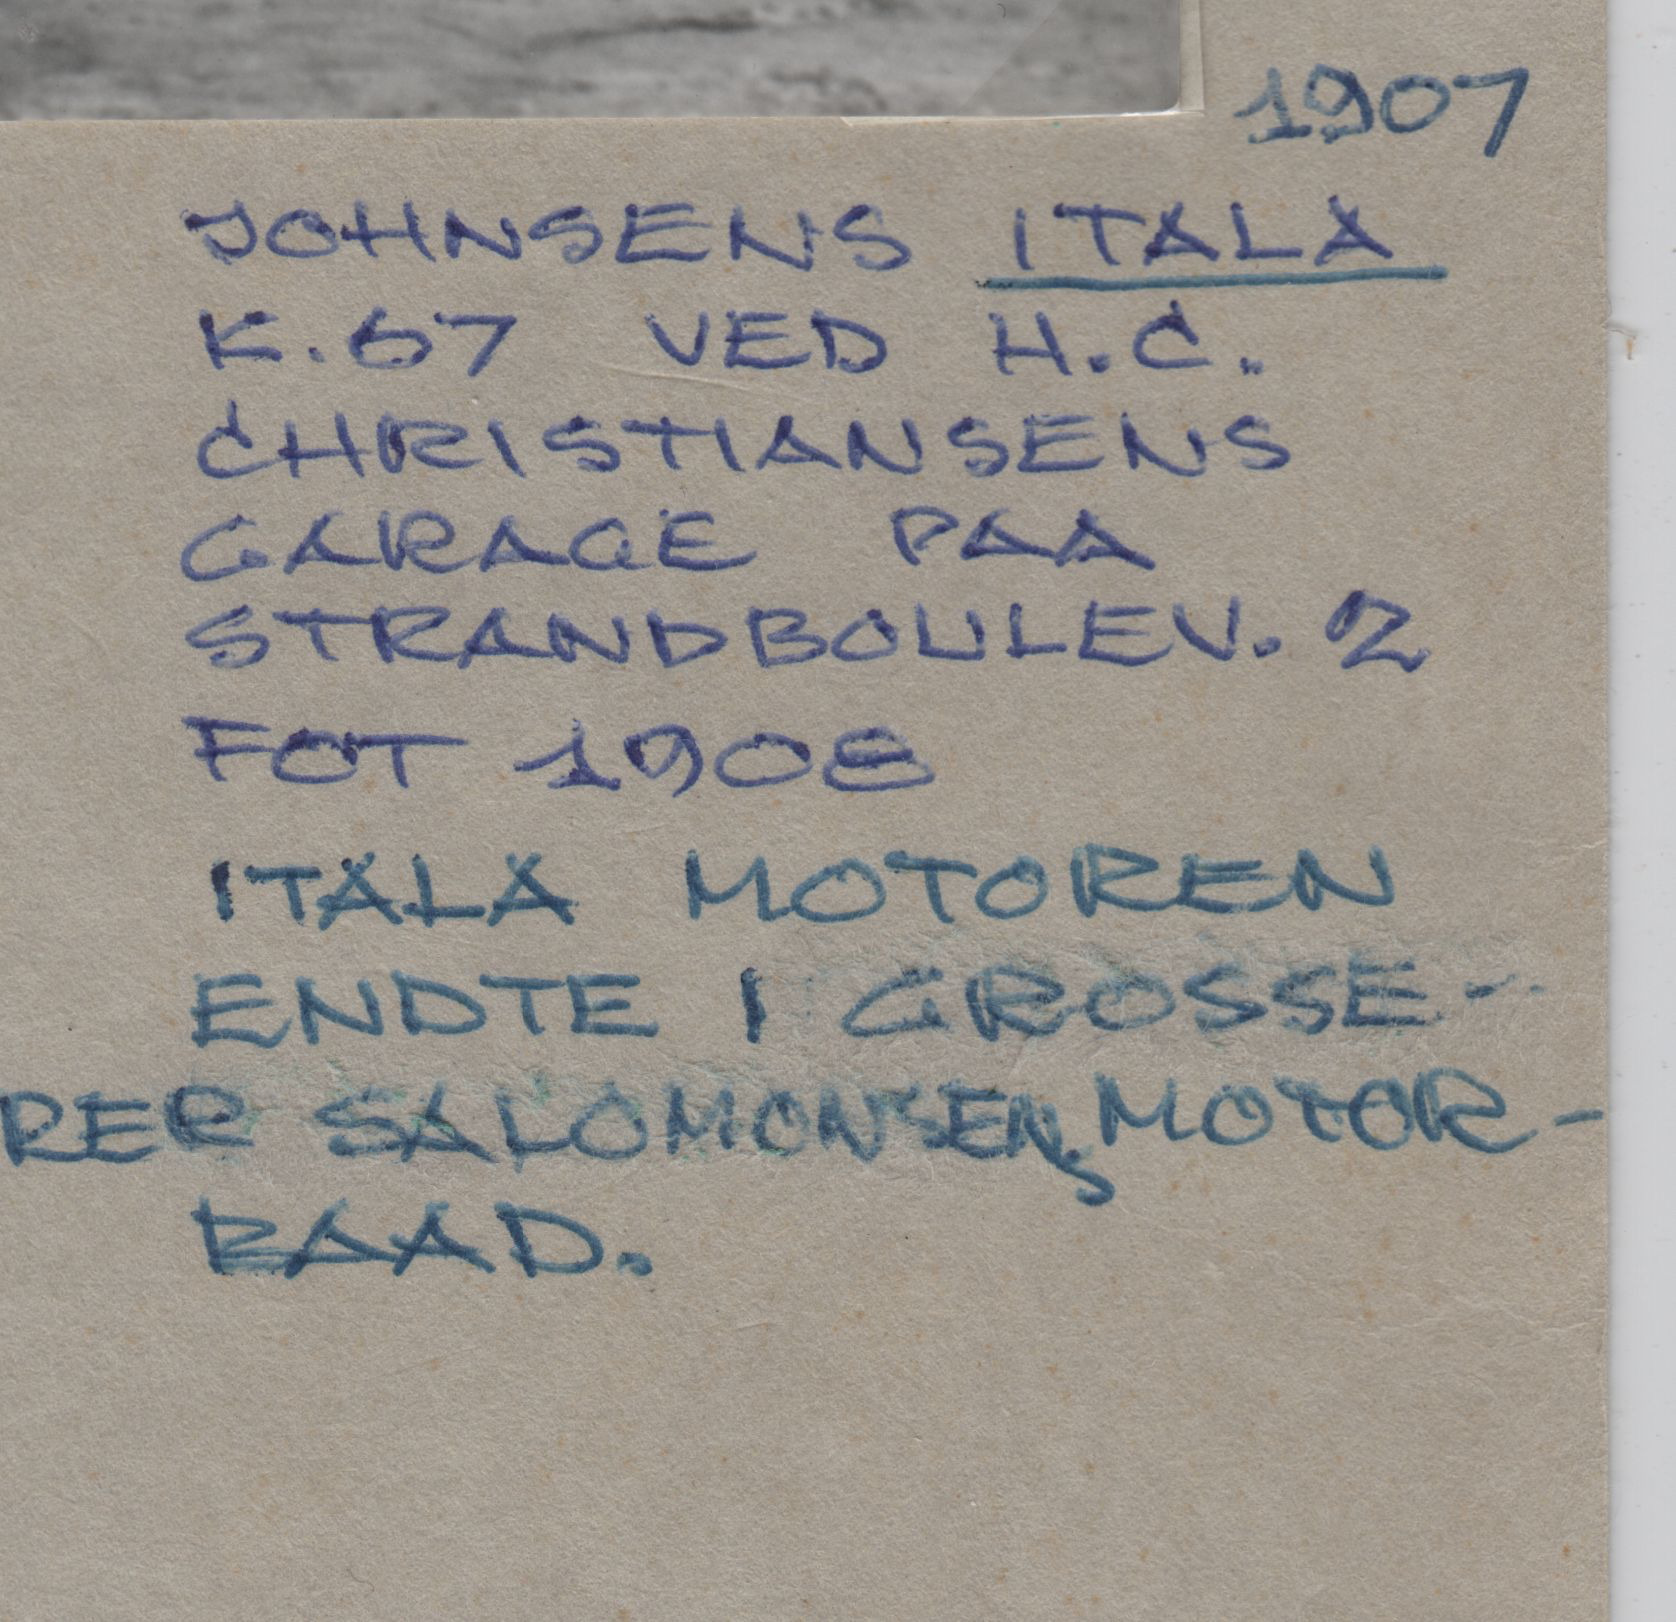 1907
JOHNSENS ITALA
K.67 VED H.C.
CHRISTIANSENS
GARAGE PAA
STRANDBOULEV. 2
FOT 1908
ITALA MOTOREN
ENDTE I GROSSE-
RER SALOMONSENS MOTOR-
BAAD.